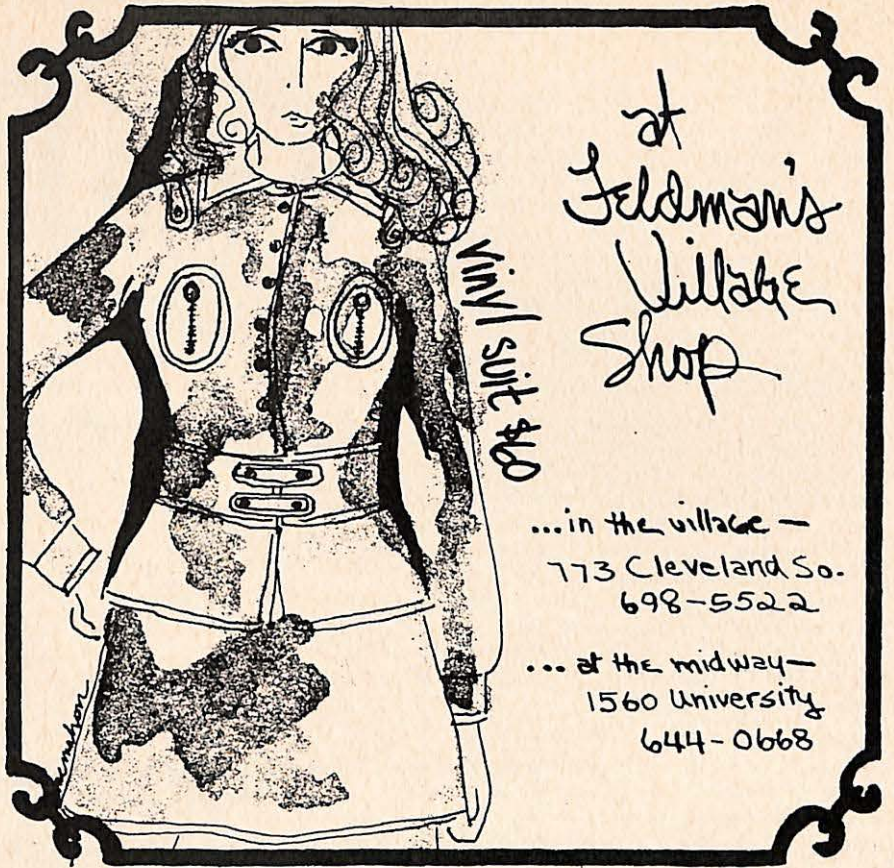 at
Feldman's
Village
Shop
vinyl suit $60
...in the village —
773 Cleveland So.
698-5522
... at the midway—
1560 University
644-0668